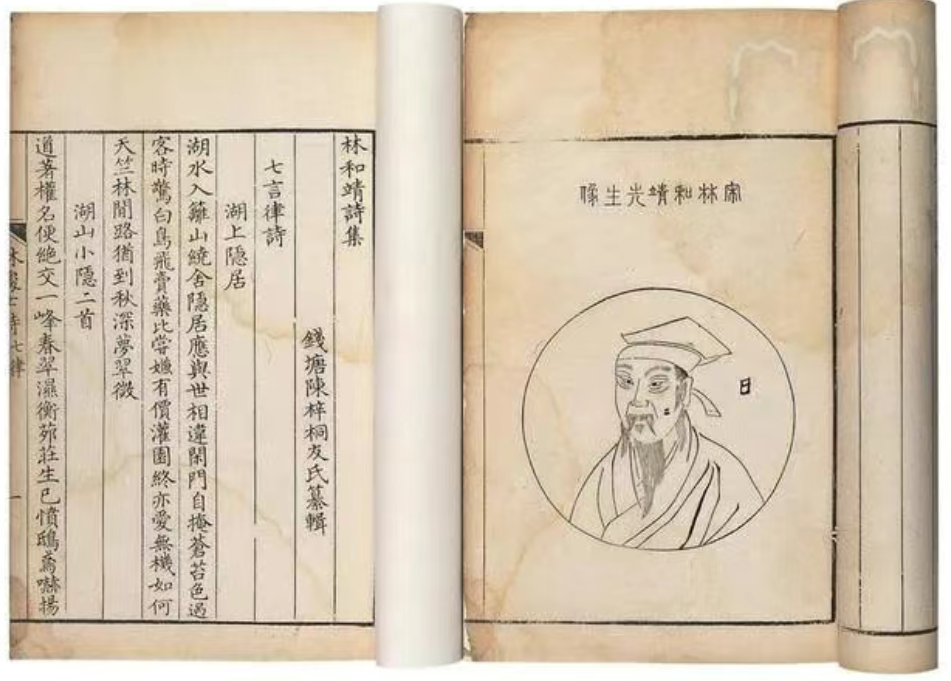 宋林和靖先生像
日
林和靖詩集
錢塘陳梓桐友氏纂輯
七言律詩
湖上隱居
湖水入籬山繞舍隱居應與世相違閑門自掩蒼苔色過
客時驚白鳥飛賣藥比嘗嫌有價灌園終亦愛無機如何
天竺林間路猶到秋深夢翠微
湖山小隱二首
道著權名便絕交一峰春翠濕衡茆莊生已憤鴟鳶嚇揚